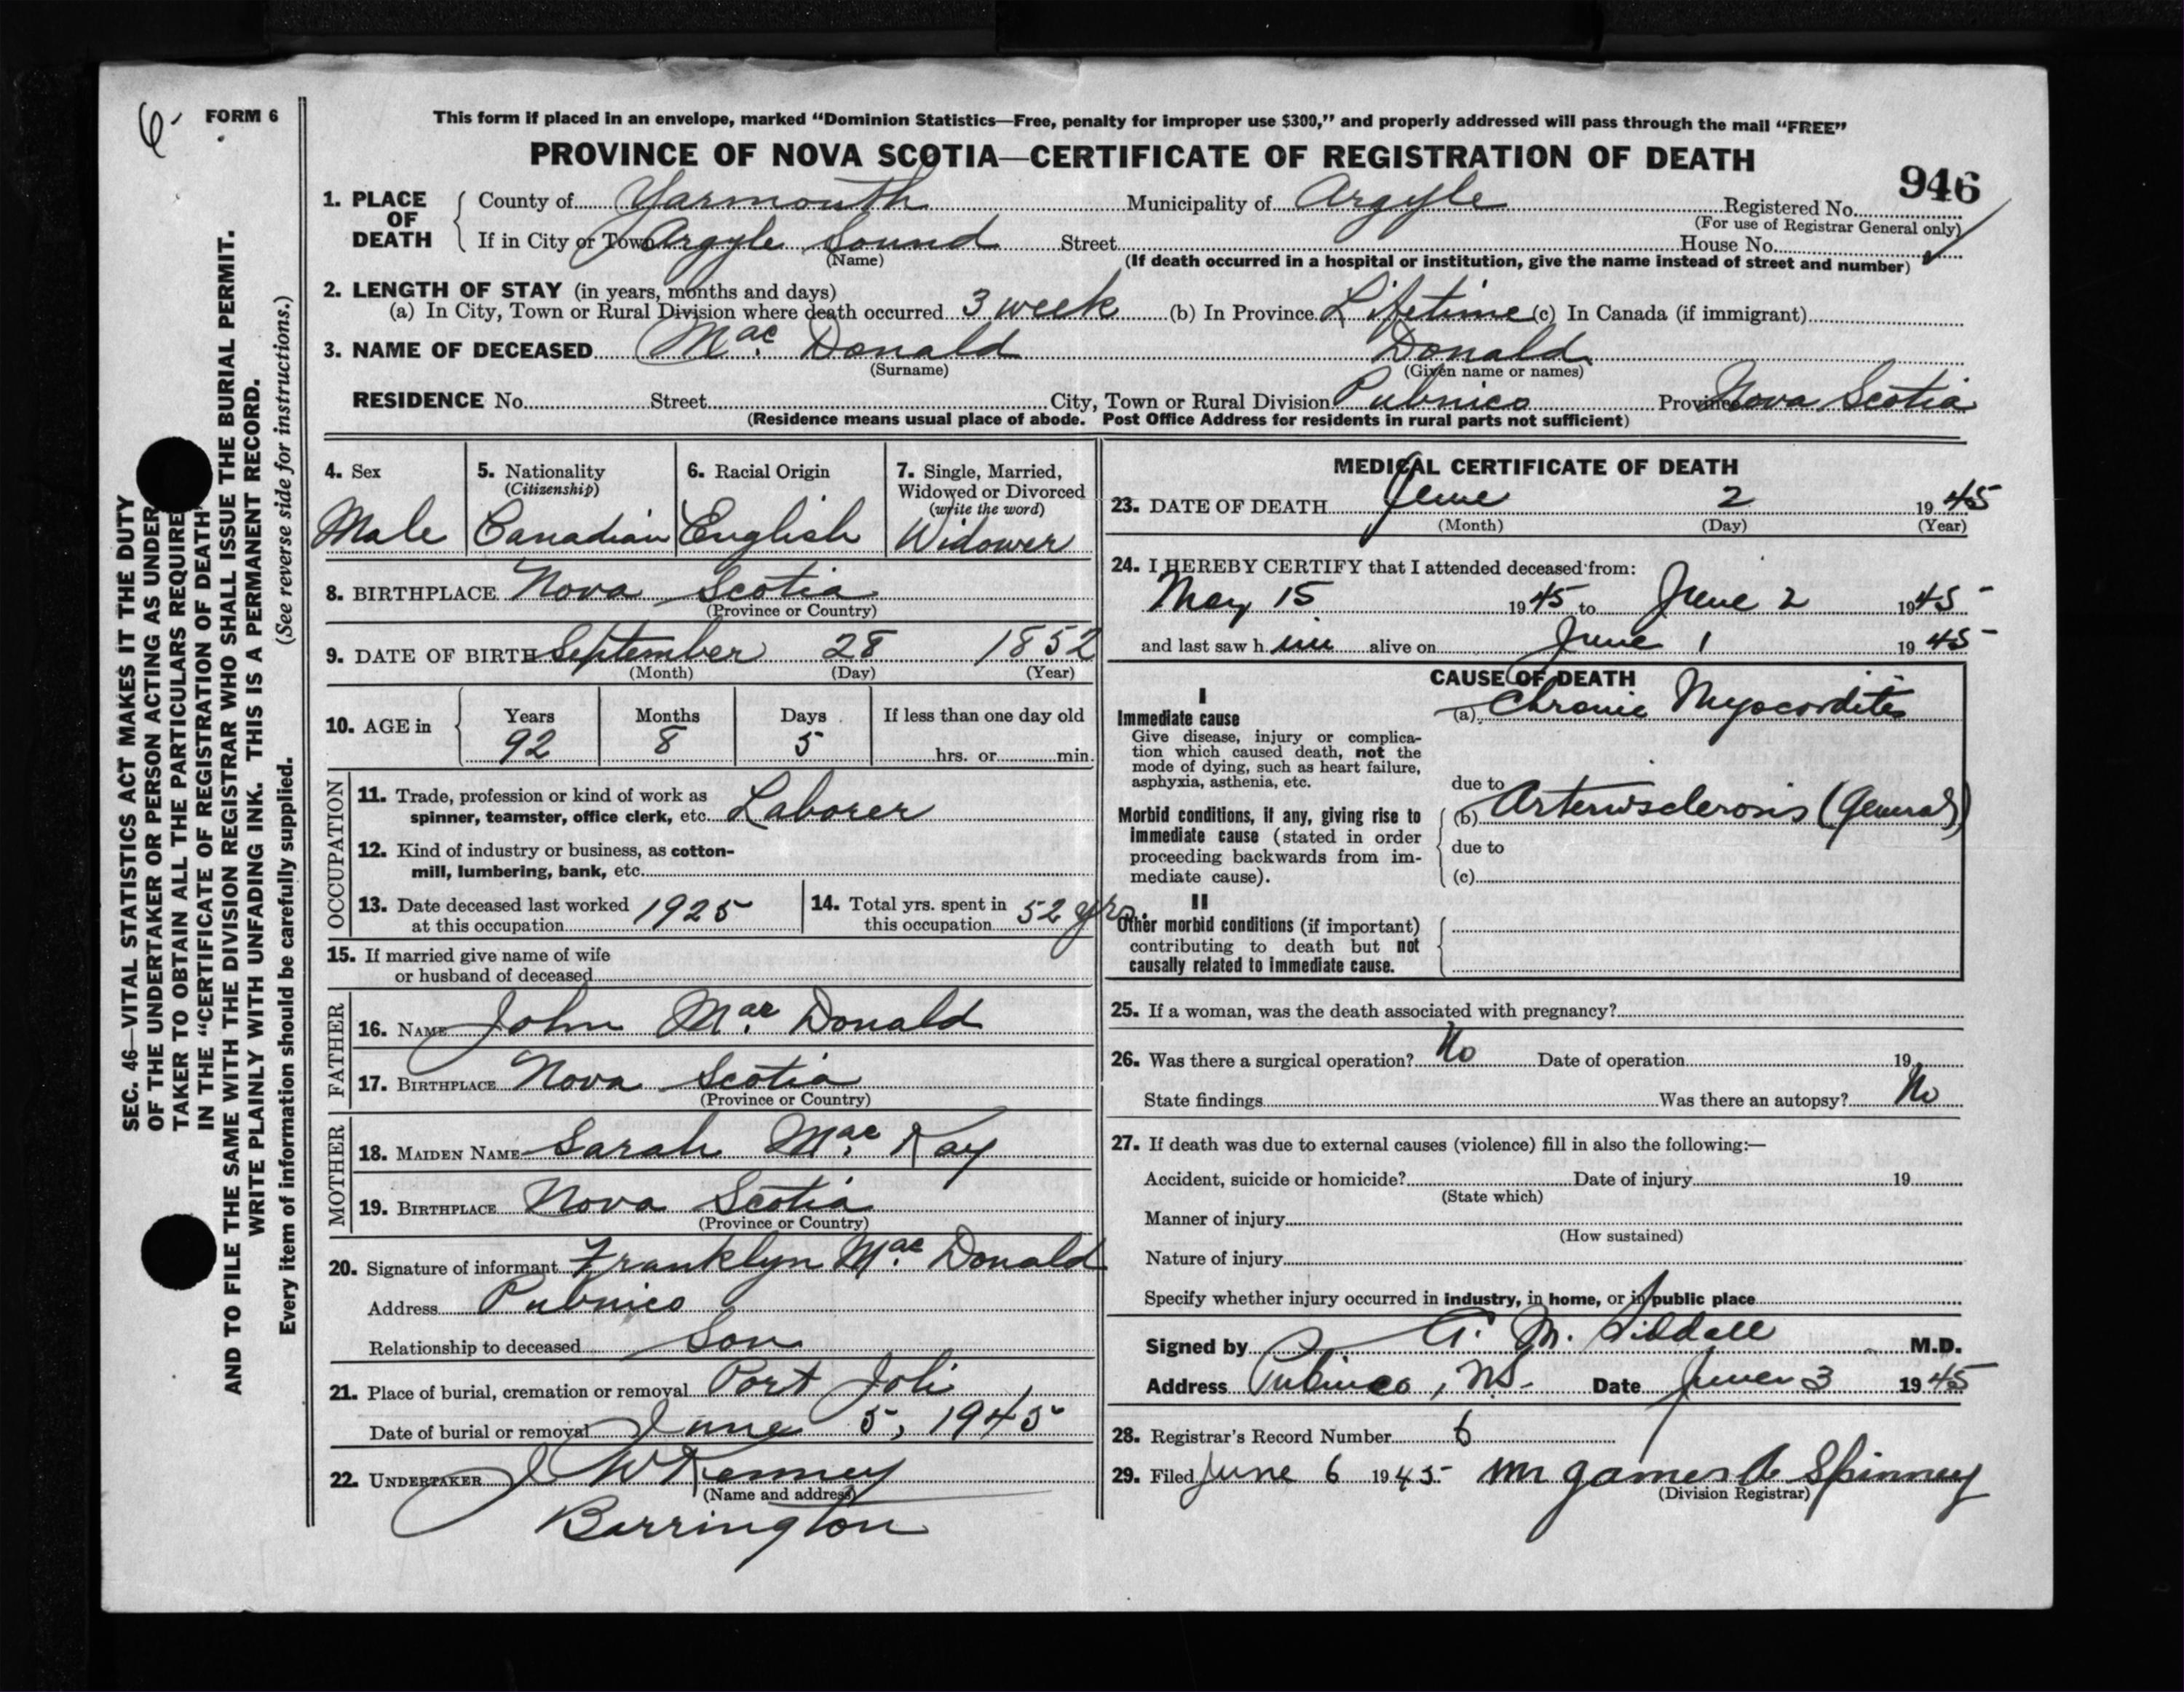 6
FORM 6
This form if placed in an envelope, marked "Dominion Statistics—Free, penalty for improper use $300," and properly addressed will pass through the mail "FREE"
PROVINCE OF NOVA SCOTIA—CERTIFICATE OF REGISTRATION OF DEATH
946
1. PLACE OF DEATH
County of Yarmouth Municipality of Argyle Registered No.
(For use of Registrar General only)
If in City or Town Argyle Sound Street House No.
(Name) (If death occurred in a hospital or institution, give the name instead of street and number)
2. LENGTH OF STAY (in years, months and days)
(a) In City, Town or Rural Division where death occurred 3 week (b) In Province Lifetime (c) In Canada (if immigrant)
3. NAME OF DECEASED Mac Donald Donald
(Surname) (Given name or names)
RESIDENCE No. Street City, Town or Rural Division Pubnico Province Nova Scotia
(Residence means usual place of abode. Post Office Address for residents in rural parts not sufficient)
4. Sex
Male
5. Nationality
(Citizenship)
Canadian
6. Racial Origin
English
7. Single, Married,
Widowed or Divorced
(write the word)
Widower
8. BIRTHPLACE Nova Scotia
(Province or Country)
9. DATE OF BIRTH September 28 1852
(Month) (Day) (Year)
10. AGE in Years Months Days If less than one day old
92 8 5 hrs. or min.
OCCUPATION
11. Trade, profession or kind of work as
spinner, teamster, office clerk, etc. Laborer
12. Kind of industry or business, as cotton-
mill, lumbering, bank, etc.
13. Date deceased last worked
at this occupation 1925
14. Total yrs. spent in
this occupation 52 yrs.
15. If married give name of wife
or husband of deceased
FATHER
16. NAME John Mac Donald
17. BIRTHPLACE Nova Scotia
(Province or Country)
MOTHER
18. MAIDEN NAME Sarah Mac Kay
19. BIRTHPLACE Nova Scotia
(Province or Country)
20. Signature of informant Franklyn Mac Donald
Address Pubnico
Relationship to deceased Son
21. Place of burial, cremation or removal Port Joli
Date of burial or removal June 5, 1945
22. UNDERTAKER J W Kenney
(Name and address)
Barrington
MEDICAL CERTIFICATE OF DEATH
23. DATE OF DEATH June 2 1945
(Month) (Day) (Year)
24. I HEREBY CERTIFY that I attended deceased from:
May 15 1945 to June 2 1945
and last saw him alive on June 1 1945
CAUSE OF DEATH
I
Immediate cause
Give disease, injury or complica-
tion which caused death, not the
mode of dying, such as heart failure,
asphyxia, asthenia, etc.
(a) Chronic Myocarditis
due to
Morbid conditions, if any, giving rise to
immediate cause (stated in order
proceeding backwards from im-
mediate cause).
(b) Arteriosclerosis (General)
due to
(c)
II
Other morbid conditions (if important)
contributing to death but not
causally related to immediate cause.
25. If a woman, was the death associated with pregnancy?
26. Was there a surgical operation? No Date of operation 19
State findings Was there an autopsy? No
27. If death was due to external causes (violence) fill in also the following:—
Accident, suicide or homicide? Date of injury 19
(State which)
Manner of injury
(How sustained)
Nature of injury
Specify whether injury occurred in industry, in home, or in public place
Signed by M. Siddall M.D.
Address Pubnico, N.S. Date June 3 1945
28. Registrar's Record Number 6
29. Filed June 6 1945 Mr James A Spinney
(Division Registrar)
SEC. 46—VITAL STATISTICS ACT MAKES IT THE DUTY
OF THE UNDERTAKER OR PERSON ACTING AS UNDER
TAKER TO OBTAIN ALL THE PARTICULARS REQUIRE
IN THE "CERTIFICATE OF REGISTRATION OF DEATH"
AND TO FILE THE SAME WITH THE DIVISION REGISTRAR WHO SHALL ISSUE THE BURIAL PERMIT.
WRITE PLAINLY WITH UNFADING INK. THIS IS A PERMANENT RECORD.
Every item of information should be carefully supplied. (See reverse side for instructions.)